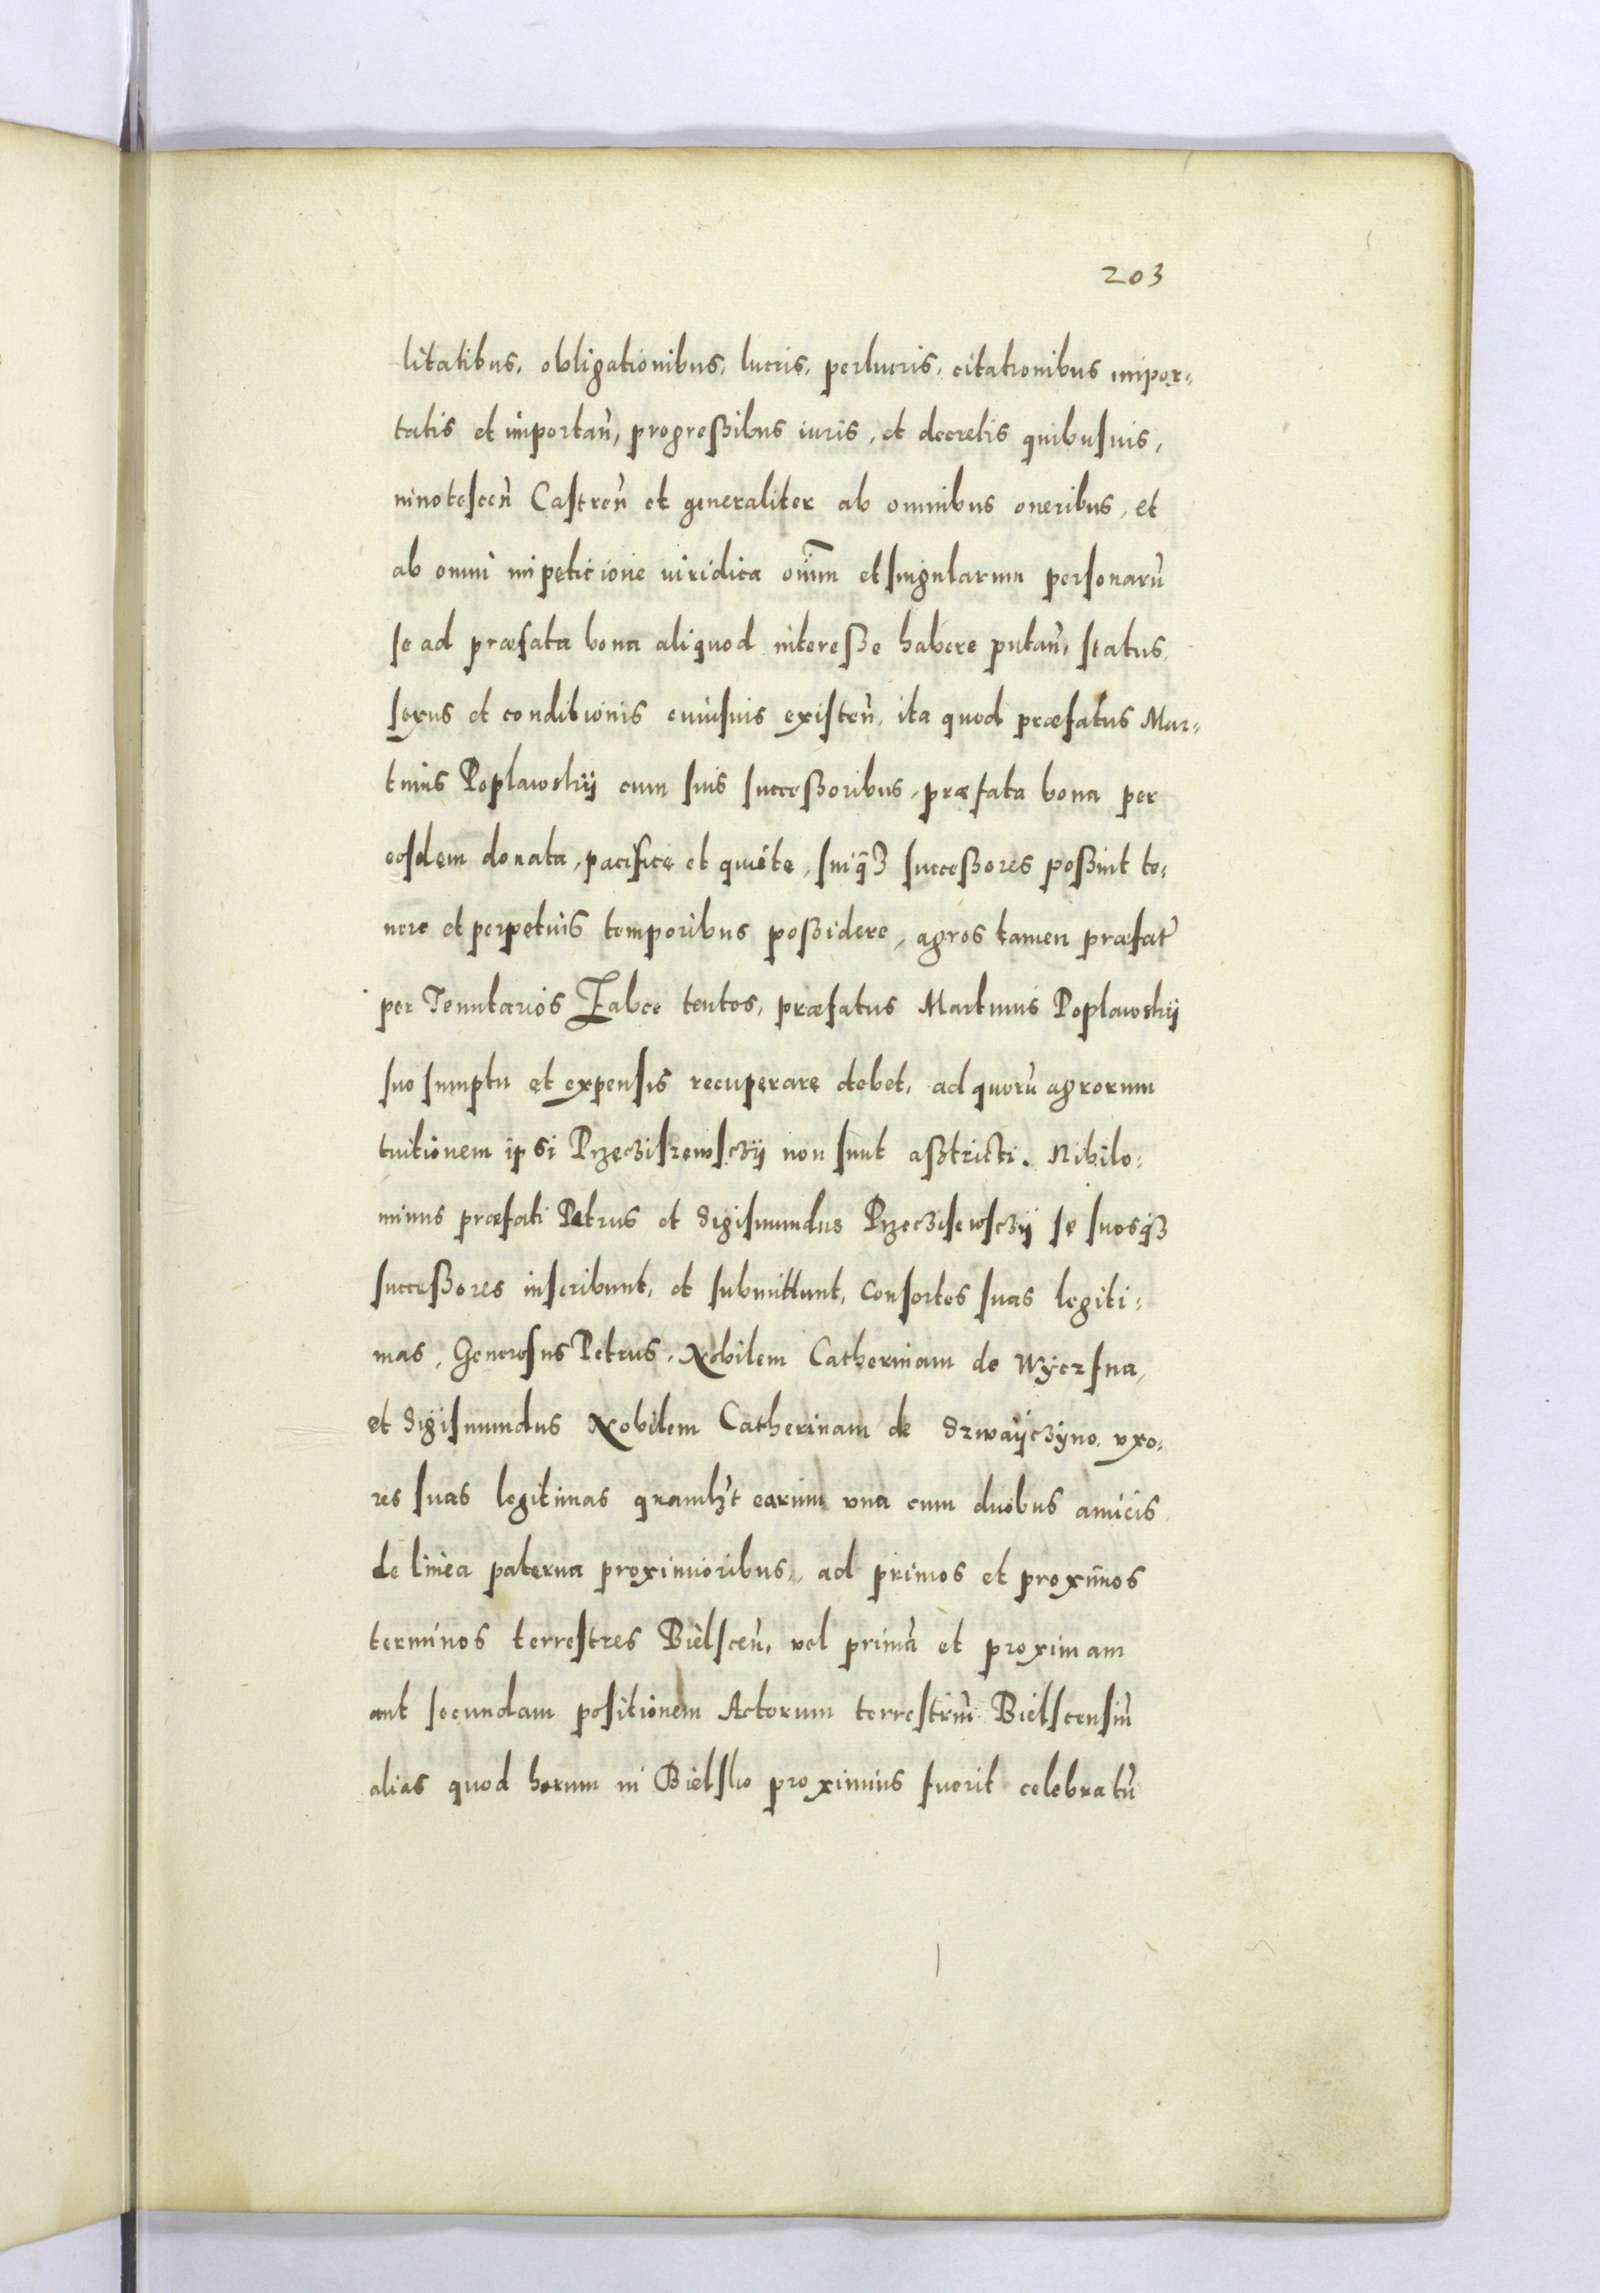 203
litatibus, obligationibus, lucris, perlucris, citationibus impor-
tatis et importañ, progreßibus iuris, et decretis quibusuis,
innotesceñ Castreñ et generaliter ab omnibus oneribus, et
ab omni impeticione iuridica oīm et singularum personarū
se ad præfata bona aliquod intereße habere putañ, status,
sexus et conditionis cuiusuis existeñ, ita quod præfatus Mar-
tinus Poplawskij cum suis succeßoribus, præfata bona per
eosdem donata, pacifice et quiete, suiq̃ȝ succeßores poßint te-
nere et perpetuis temporibus poßidere, agros tamen præfat
per Tenutarios Zabce tentos, præfatus Martinus Poplawskij
suo sumptu et expensis recuperare debet, ad quorū agrorum
tuitionem ipsi Przecziszewsczij non sunt aßtricti. Nihilo-
minus præfati Petrus et Sigismundus Przeczisewsczij se suosq̃ȝ
succeßores inscribunt, et submittunt, Consortes suas legiti-
mas, Generosus Petrus, Nobilem Catherinam de Wÿerzsna,
et Sigismundus Nobilem Catherinam de Szwaijczÿno, vxo-
res suas legitimas quamlꝫt earum vna cum duobus amicis
de linea paterna proximioribus, ad primos et proximos
terminos terrestres Bielsceñ, vel primā et proximam
aut secundam positionem Actorum terrestriū Bielscensiū
alias quod horum in Bielsko proximius fuerit celebratū